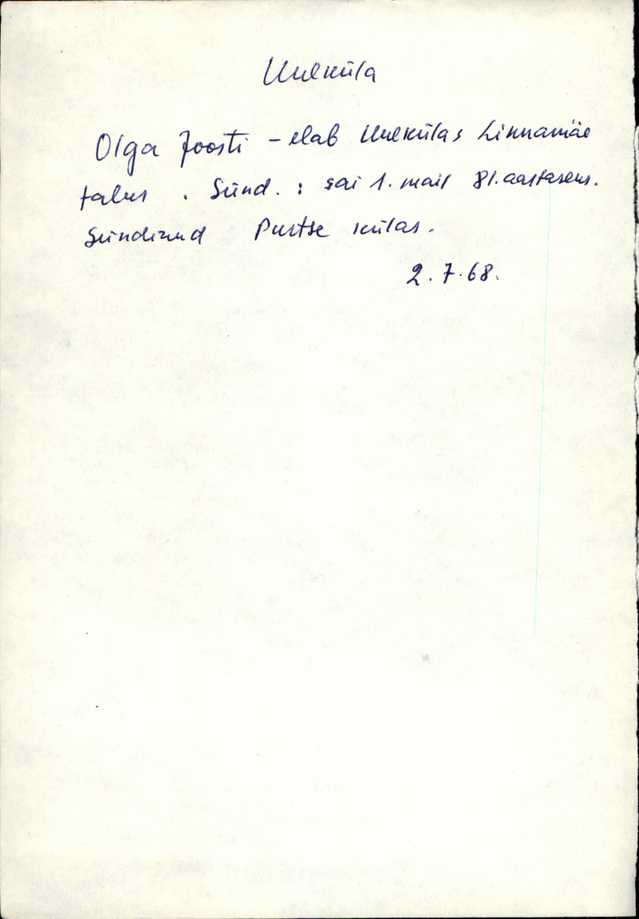 Uueküla
Olga Joosti - elab Uuekülas Linnamäe
talus. Sünd. : sai 1. mail 81. aastaseks.
Sündinud Purtse külas.
2.7.68.